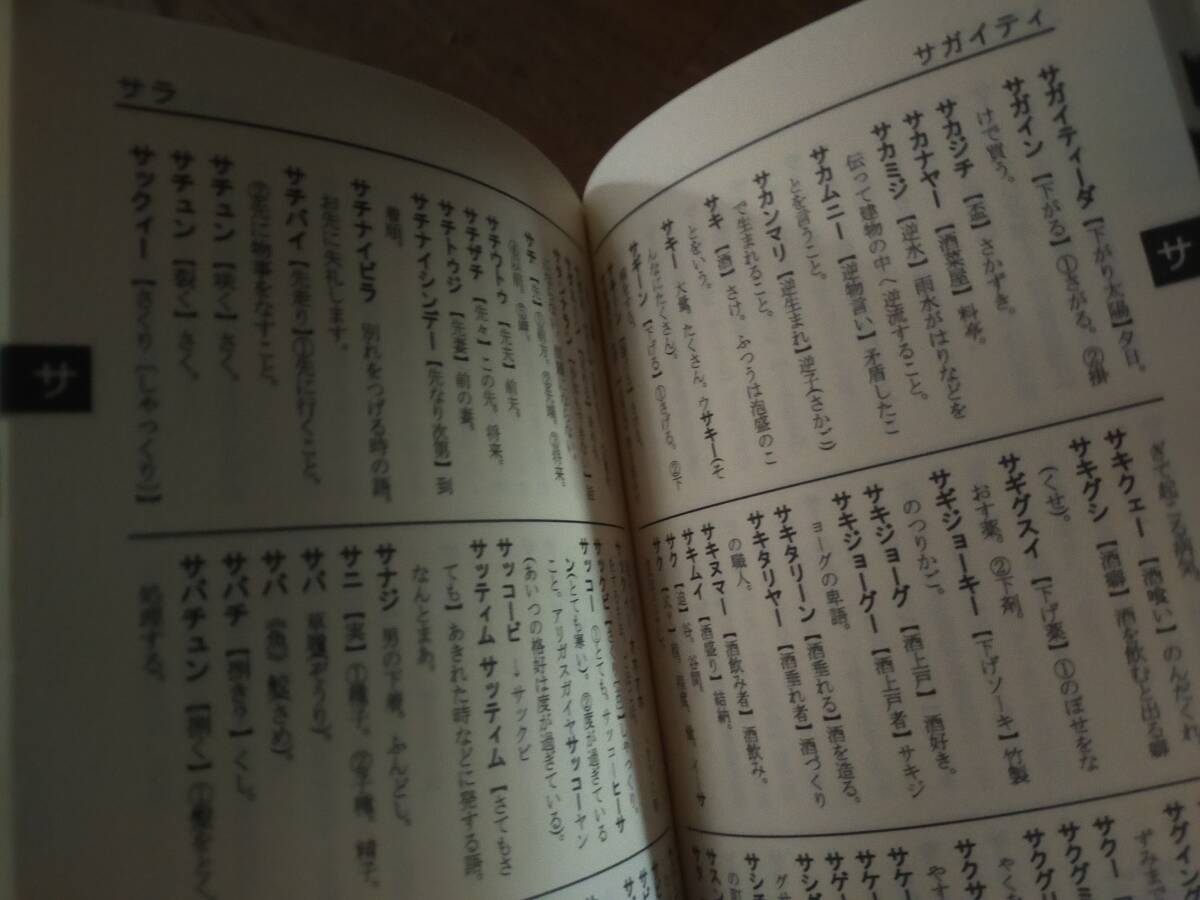 サガイティ
サ
サガイティーダ【下がり太陽】夕日。
サガイン【下がる】①さがる。②掛
けで買う。
サカジチ【盃】さかずき。
サカナヤー【酒菜屋】料亭。
サカミジ【逆水】雨水がはりなどを
伝って建物の中へ逆流すること。
サカムニー【逆物言い】矛盾したこ
とを言うこと。
サカンマリ【逆生まれ】逆子(さかご)
で生まれること。
サキ【酒】さけ。ふつうは泡盛のこ
とをいう。
サキー 大量。たくさん。ウサキー(そ
んなにたくさん)。
サギーン【下げる】①さげる。②下
ぎて起こる病気。
サキクェー【酒喰い】のんだくれ。
サキグシ【酒癖】酒を飲むと出る癖
(くせ)。
サギグスイ【下げ薬】①のぼせをな
おす薬。②下剤。
サギジョーキー【下げソーキ】竹製
のつりかご。
サキジョーグ【酒上戸】酒好き。
サキジョーグー【酒上戸者】サキジ
ョーグの卑語。
サキタリーン【酒垂れる】酒を造る。
サキタリヤー【酒垂れ者】酒づくり
の職人。
サキヌマー【酒飲み者】酒飲み。
サキムイ【酒盛り】結納。
サク【迫】谷。谷間。
サグイング
ずみまで
サクー
サグミ
サクグリ
やくな
サクサ
やす
サケー
サゲー
サシグ
サシチ
の町
サスイ
サラ
サ
サチ【先】①前方。②先端。③将来。
サチウトゥ【先夫】前夫。
サチザチ【先々】この先。将来。
サチトゥジ【先妻】前の妻。
サチナイシンデー【先なり次第】到
着順。
サチナイビラ 別れをつげる時の語。
お先に失礼します。
サチバイ【先走り】①先に行くこと。
②先に物事をなすこと。
サチュン【咲く】さく。
サチュン【裂く】さく。
サックィー【さくり[しゃっくり]】
サッコー ①とても。サッコーヒーサ
ン(とても寒い)。②度が過ぎている
こと。アリガスガイヤサッコーヤン
(あいつの格好は度が過ぎている)。
サッコービ →サックビ
サッティム サッティム【さてもさ
ても】あきれた時などに発する語。
なんとまあ。
サナジ 男の下着。ふんどし。
サニ【実】①種子。②子種。精子。
サバ 草履(ぞうり)。
サバ〈魚〉鮫(さめ)。
サバチ【捌き】くし。
サバチュン【捌く】①髪をとく
処理する。